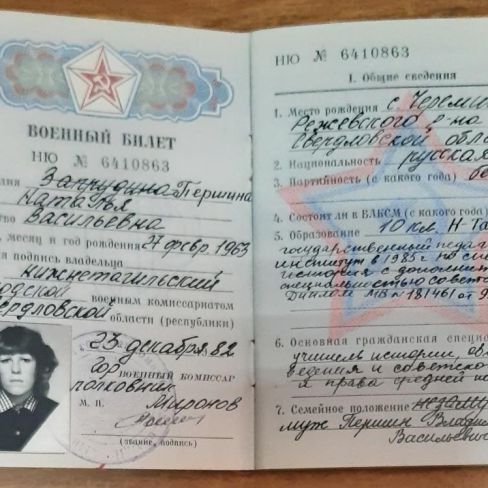 ВОЕННЫЙ БИЛЕТ
НЮ № 6410863
Запрудина Першина
Наталья
Васильевна
месяц и год рождения 27 февр. 1963
подпись владельца
Нижнетагильский
военным комиссариатом
Свердловской области (республики)
23 декабря 82
Гор. ВОЕННЫЙ КОМИССАР
полковник
М. П. Миронов
(звание, подпись)
НЮ № 6410863
I. Общие сведения
1. Место рождения с. Черемис
Режевского р-на
Свердловской обла
2. Национальность русская
3. Партийность (с какого года)
4. Состоит ли в ВЛКСМ (с какого года)
5. Образование 10 кл, Н-Та
государственный педаг
институт в 1985 г. по спе
история с дополнит
специальностью совет
Диплом МВ № 181461 от
6. Основная гражданская специ
учитель истории,
ведения и советског
я права средней
7. Семейное положение незамуж
муж Першин Влади
Васильевич